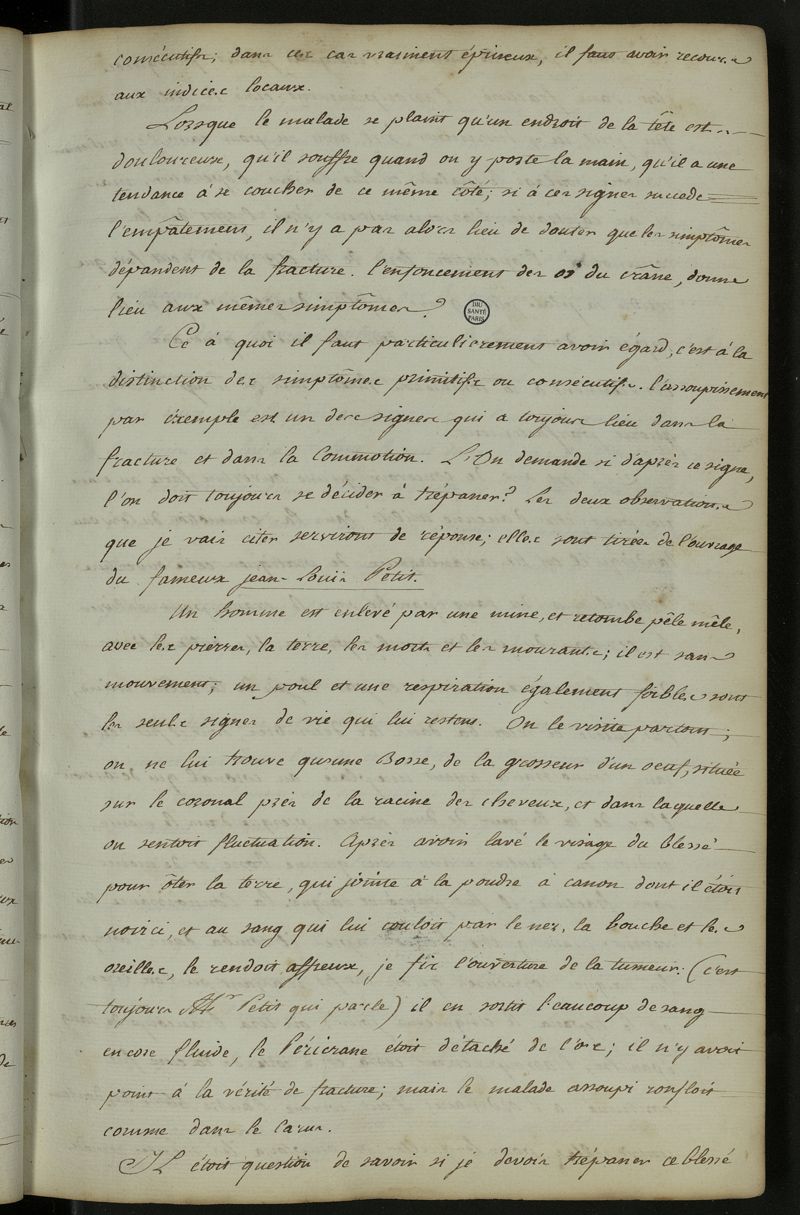 consécutifs; dans ces cas vraiment épineux, il faut avoir recours
aux indices locaux.
Lorsque le malade se plaint qu'un endroit de la tête est
douloureux, qu'il souffre quand on y porte la main, qu'il a une
tendance à se coucher de ce même côté; si à ces signes succede
l'empâtement, il n'y a pas alors lieu de douter que les simptômes
dépendent de la fracture. l'enfoncement des os du crâne, donne
lieu aux mêmes simptômes?
BIU
SANTÉ
PARIS
Ce à quoi il faut particulierement avoir égard, c'est à la
distinction des simptômes primitifs ou consécutifs. l'assoupissement
par éxemple est un des signes qui a toujours lieu dans la
fracture et dans la Commotion. L'On demande si d'après ce signe,
l'on doit toujours se décider à trépaner? Les deux observations
que je vais citer serviront de réponse; elles sont tirées de l'ouvrage
du fameux jean-Louis Petit.
Un homme est enlevé par une mine, et retombe pêle mêle,
avec les pierres, la terre, les morts et les mourants; il est sans
mouvement; un poul et une respiration également foibles sont
les seuls signes de vie qui lui restent. On le visite partout;
on ne lui trouve qu'une Bosse, de la grosseur d'un oeuf, située
sur le coronal près de la racine des cheveux, et dans laquelle
on sentoit fluctuation. Après avoir lavé le visage du blessé
pour ôter la terre, qui jointe à la poudre à canon dont il étoit
noirci, et au sang qui lui couloit par le nez, la bouche et les
oreilles, le rendoit affreux, je fis l'ouverture de la tumeur: (c'est
toujours Mr Petit qui parle) il en sortit beaucoup de sang
encore fluide, le Péricrane étoit détaché de l'os; il n'y avoit
point à la vérité de fracture; mais le malade assoupi ronfloit
comme dans le Carus.
IL étoit question de savoir si je devois trépaner ce blessé